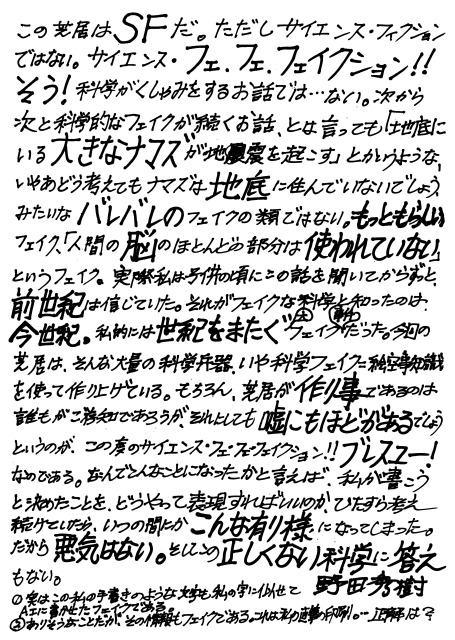 この芝居はSFだ。ただしサイエンス・フィクション
ではない。サイエンス・フェ、フェ、フェイクション!!
そう!科学がくしゃみをするお話では…ない。次から
次と科学的なフェイクが続くお話、とは言っても「地底に
いる大きなナマズが地震を起こす」とかいうような、
いやあどう考えてもナマズは地底に住んでいないでしょう、
みたいなバレバレのフェイクの類ではない。もっともらしい
フェイク、「人間の脳のほとんどの部分は使われていない」
というフェイク。実際私は子供の頃にこの話を聞いてからずっと、
前世紀は信じていた。それがフェイクな科学と知ったのは、
今世紀。私的には世紀をまたぐフェイクだった。今回の
芝居は、そんな大量の科学兵器、いや科学フェイク=絵空事知識
を使って作り上げている。もちろん、芝居が作り事であるのは
誰もがご承知であろうが、それにしても嘘にもほどがあるでしょう
というのが、この度のサイエンス・フェ・フェ・フェイクション!!ブレスユー!
なのである。なんでこんなことになったかと言えば、私が書こう
と決めたことを、どうやって表現すればいいのか、ひたすら考え
続けていたら、いつの間にかこんな有り様になってしまった。
だから悪気はない。そしてこの正しくない科学に答え
もない。 野田秀樹
①実はこの私の手書きのような文字も、私の字に似せて
AIに書かせたフェイクである。
②ありそうなことだが、その情報もフェイクである。これは私の直筆の印刷。… 正解は?